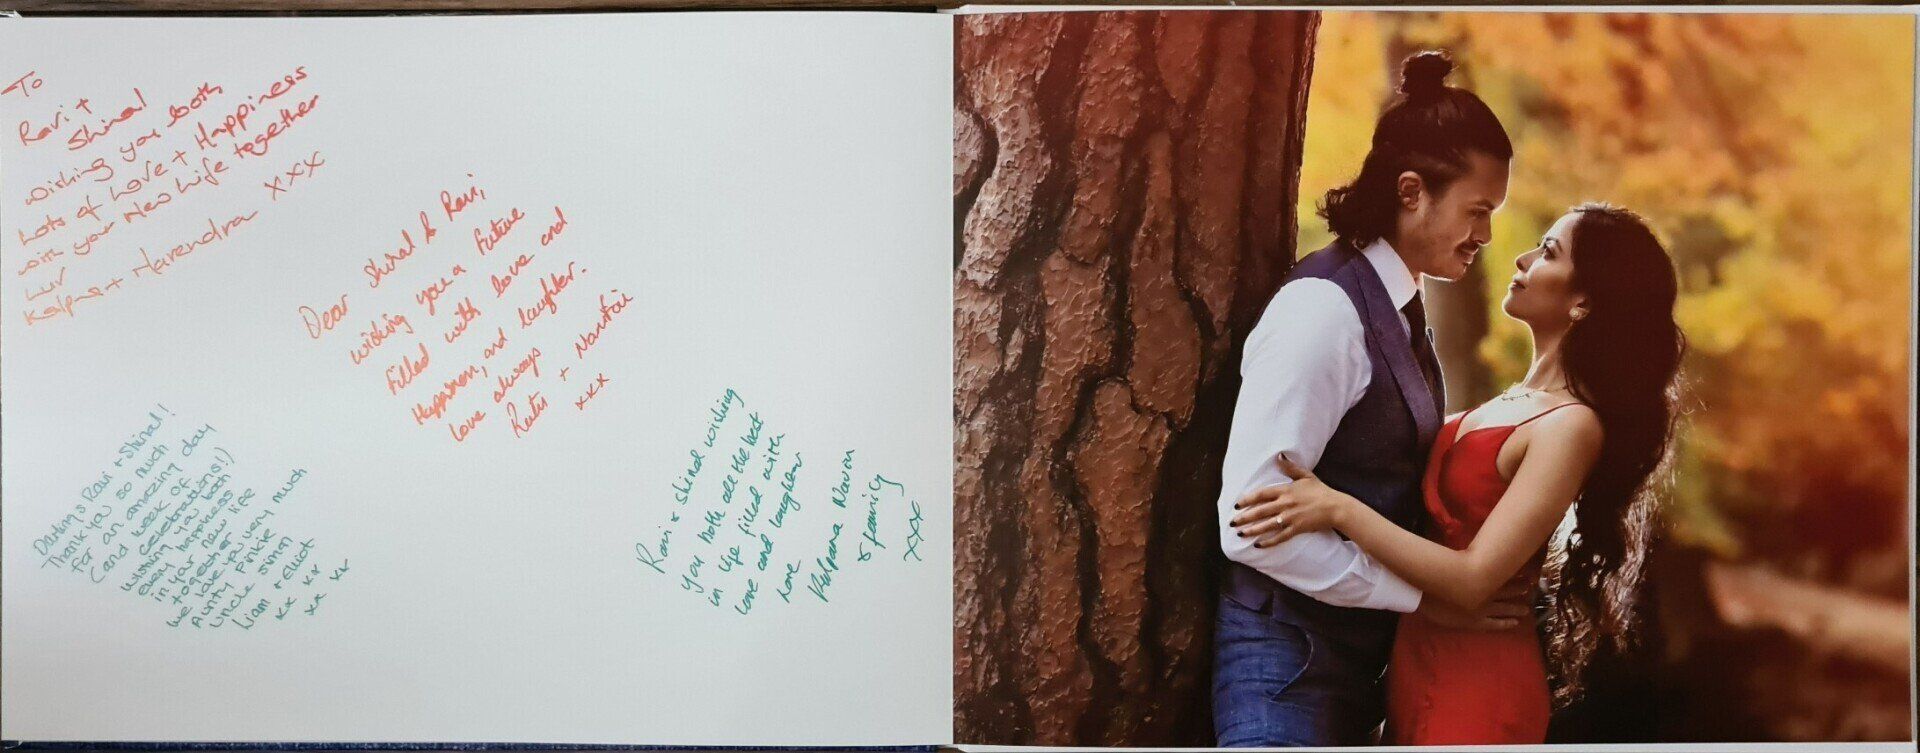 To
Ravi +
Shinal
wishing you both
Lots of Love + Happiness
with your New Life together
Luv
Kalpna + Narendra xxx
Dear Shinal & Ravi,
wishing you a future
filled with love and
Happiness, and laughter.
love always
+
xxx
Darlings Ravi + Shinal!
Thank you so much
for an amazing day
(and week of
celebrations!)
Wishing you both
every happiness
in your new life
together
We love you very much
Aunty Pinkie
Uncle Simon
Liam + Elliot
xx xx
xx xx
Ravi & Shinal wishing
you both all the best
in life filled with
love and laughter
Love
Kalpana Navin
& family
xxx